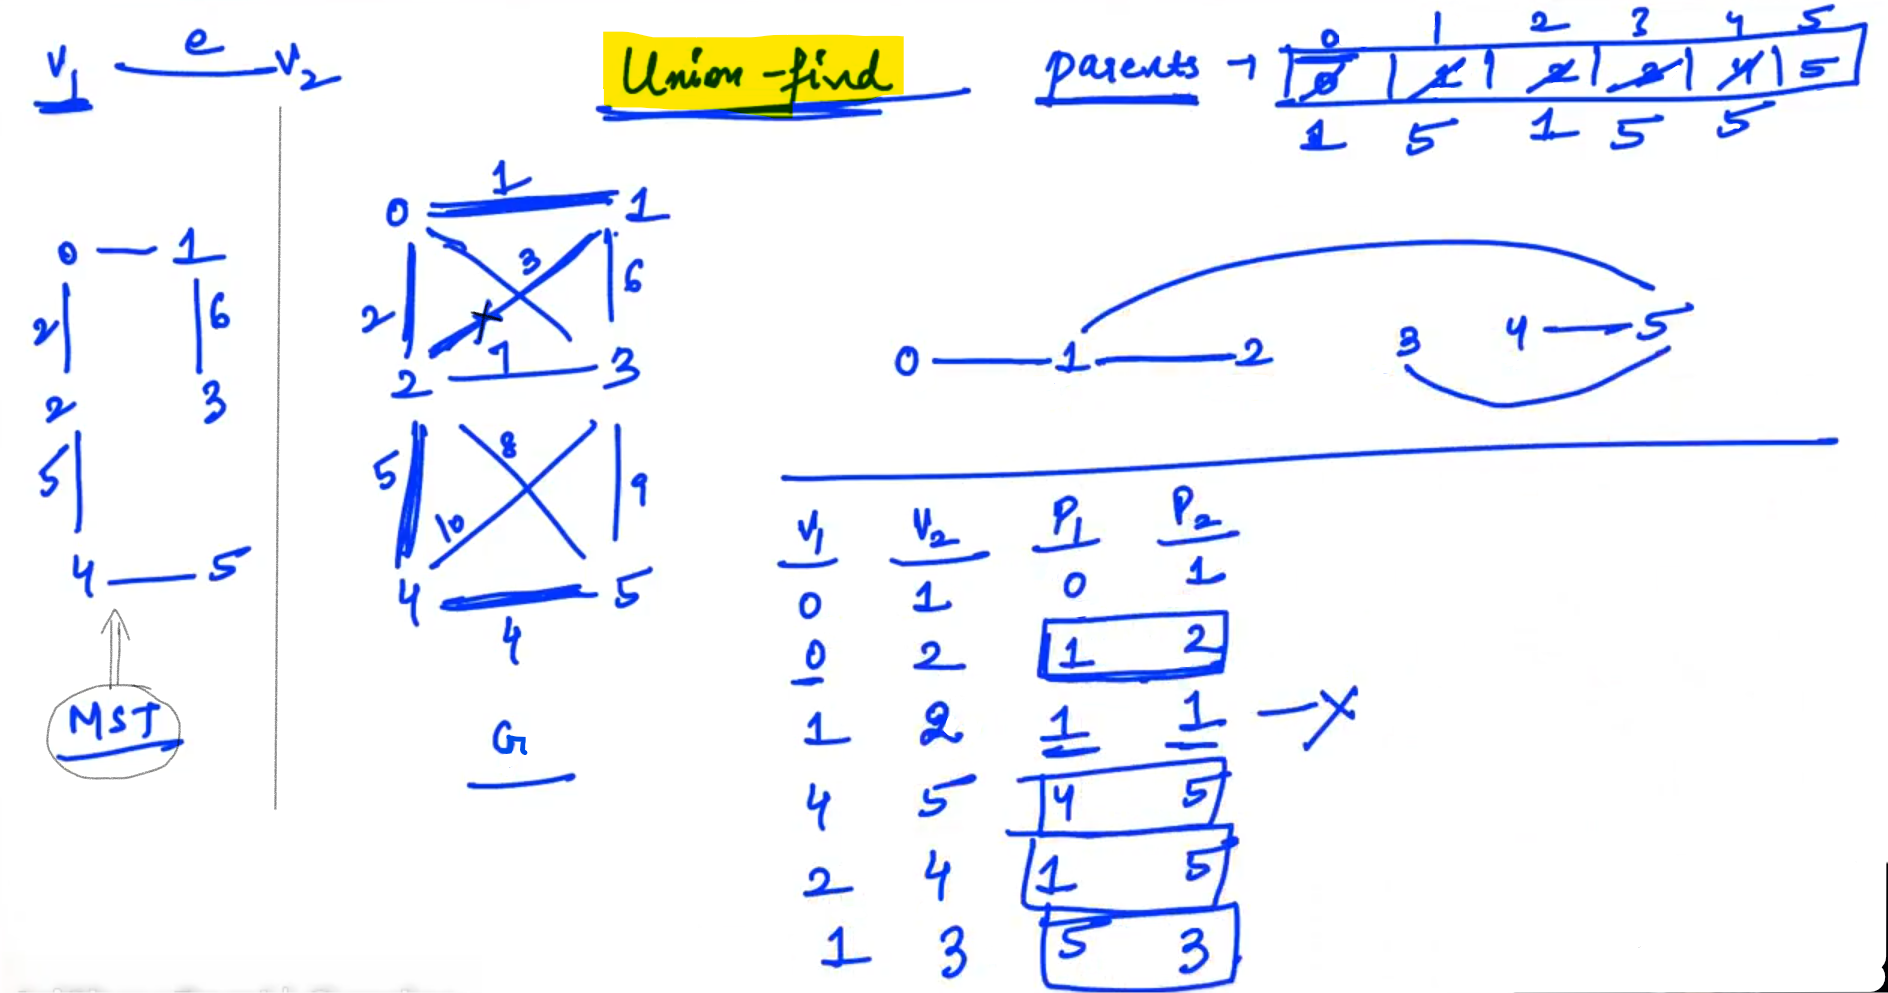 V1 e V2
Union-find
parents → 0 1 2 3 4 5
0 1 2 3 4 5
1 5 1 5 5
0 1
2 6
2 3
5
4 5
MST
1
0 1
3
2 6
7
2 3
8
5 9
10
4 5
4
G
0 1 2 3 4 5
V1 V2 P1 P2
0 1 0 1
0 2 1 2
1 2 1 1 — X
4 5 4 5
2 4 1 5
1 3 5 3